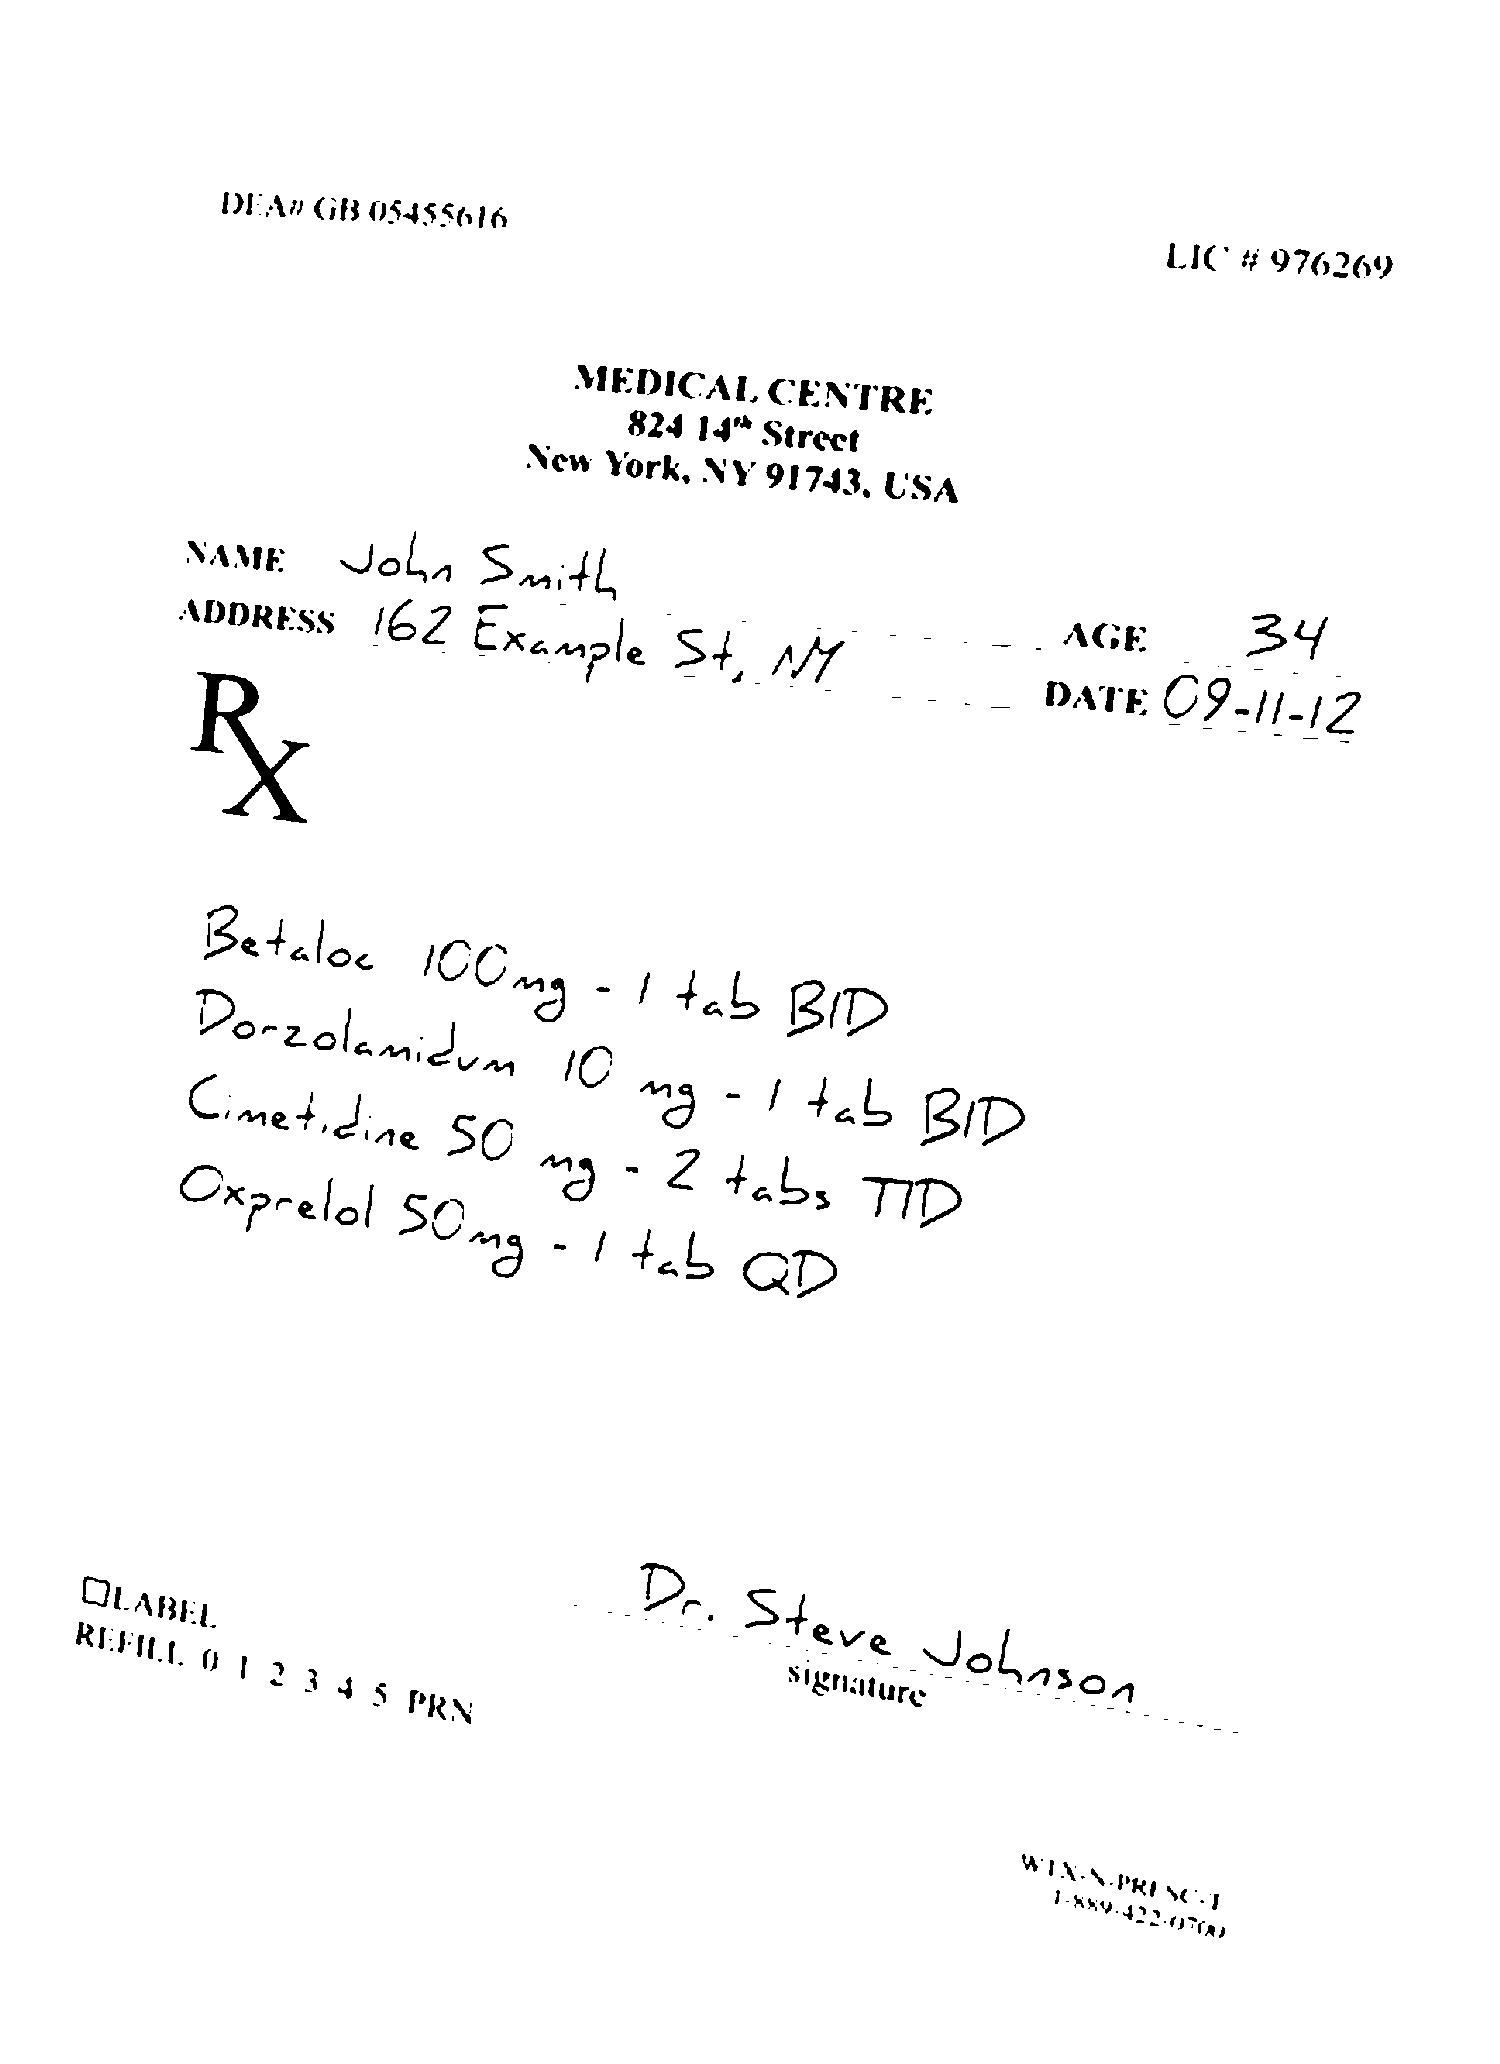 DEA# GB 05455616
LIC # 976269
MEDICAL CENTRE
824 14th Street
New York, NY 91743, USA
NAME John Smith
ADDRESS 162 Example St, NY
AGE 34
DATE 09-11-12
Rx
Betaloc 100mg - 1 tab BID
Dorzolamidum 10 mg - 1 tab BID
Cimetidine 50 mg - 2 tabs TID
Oxprelol 50mg - 1 tab QD
LABEL
REFILL 0 1 2 3 4 5 PRN
Dr. Steve Johnson
signature
1-889-422-0700